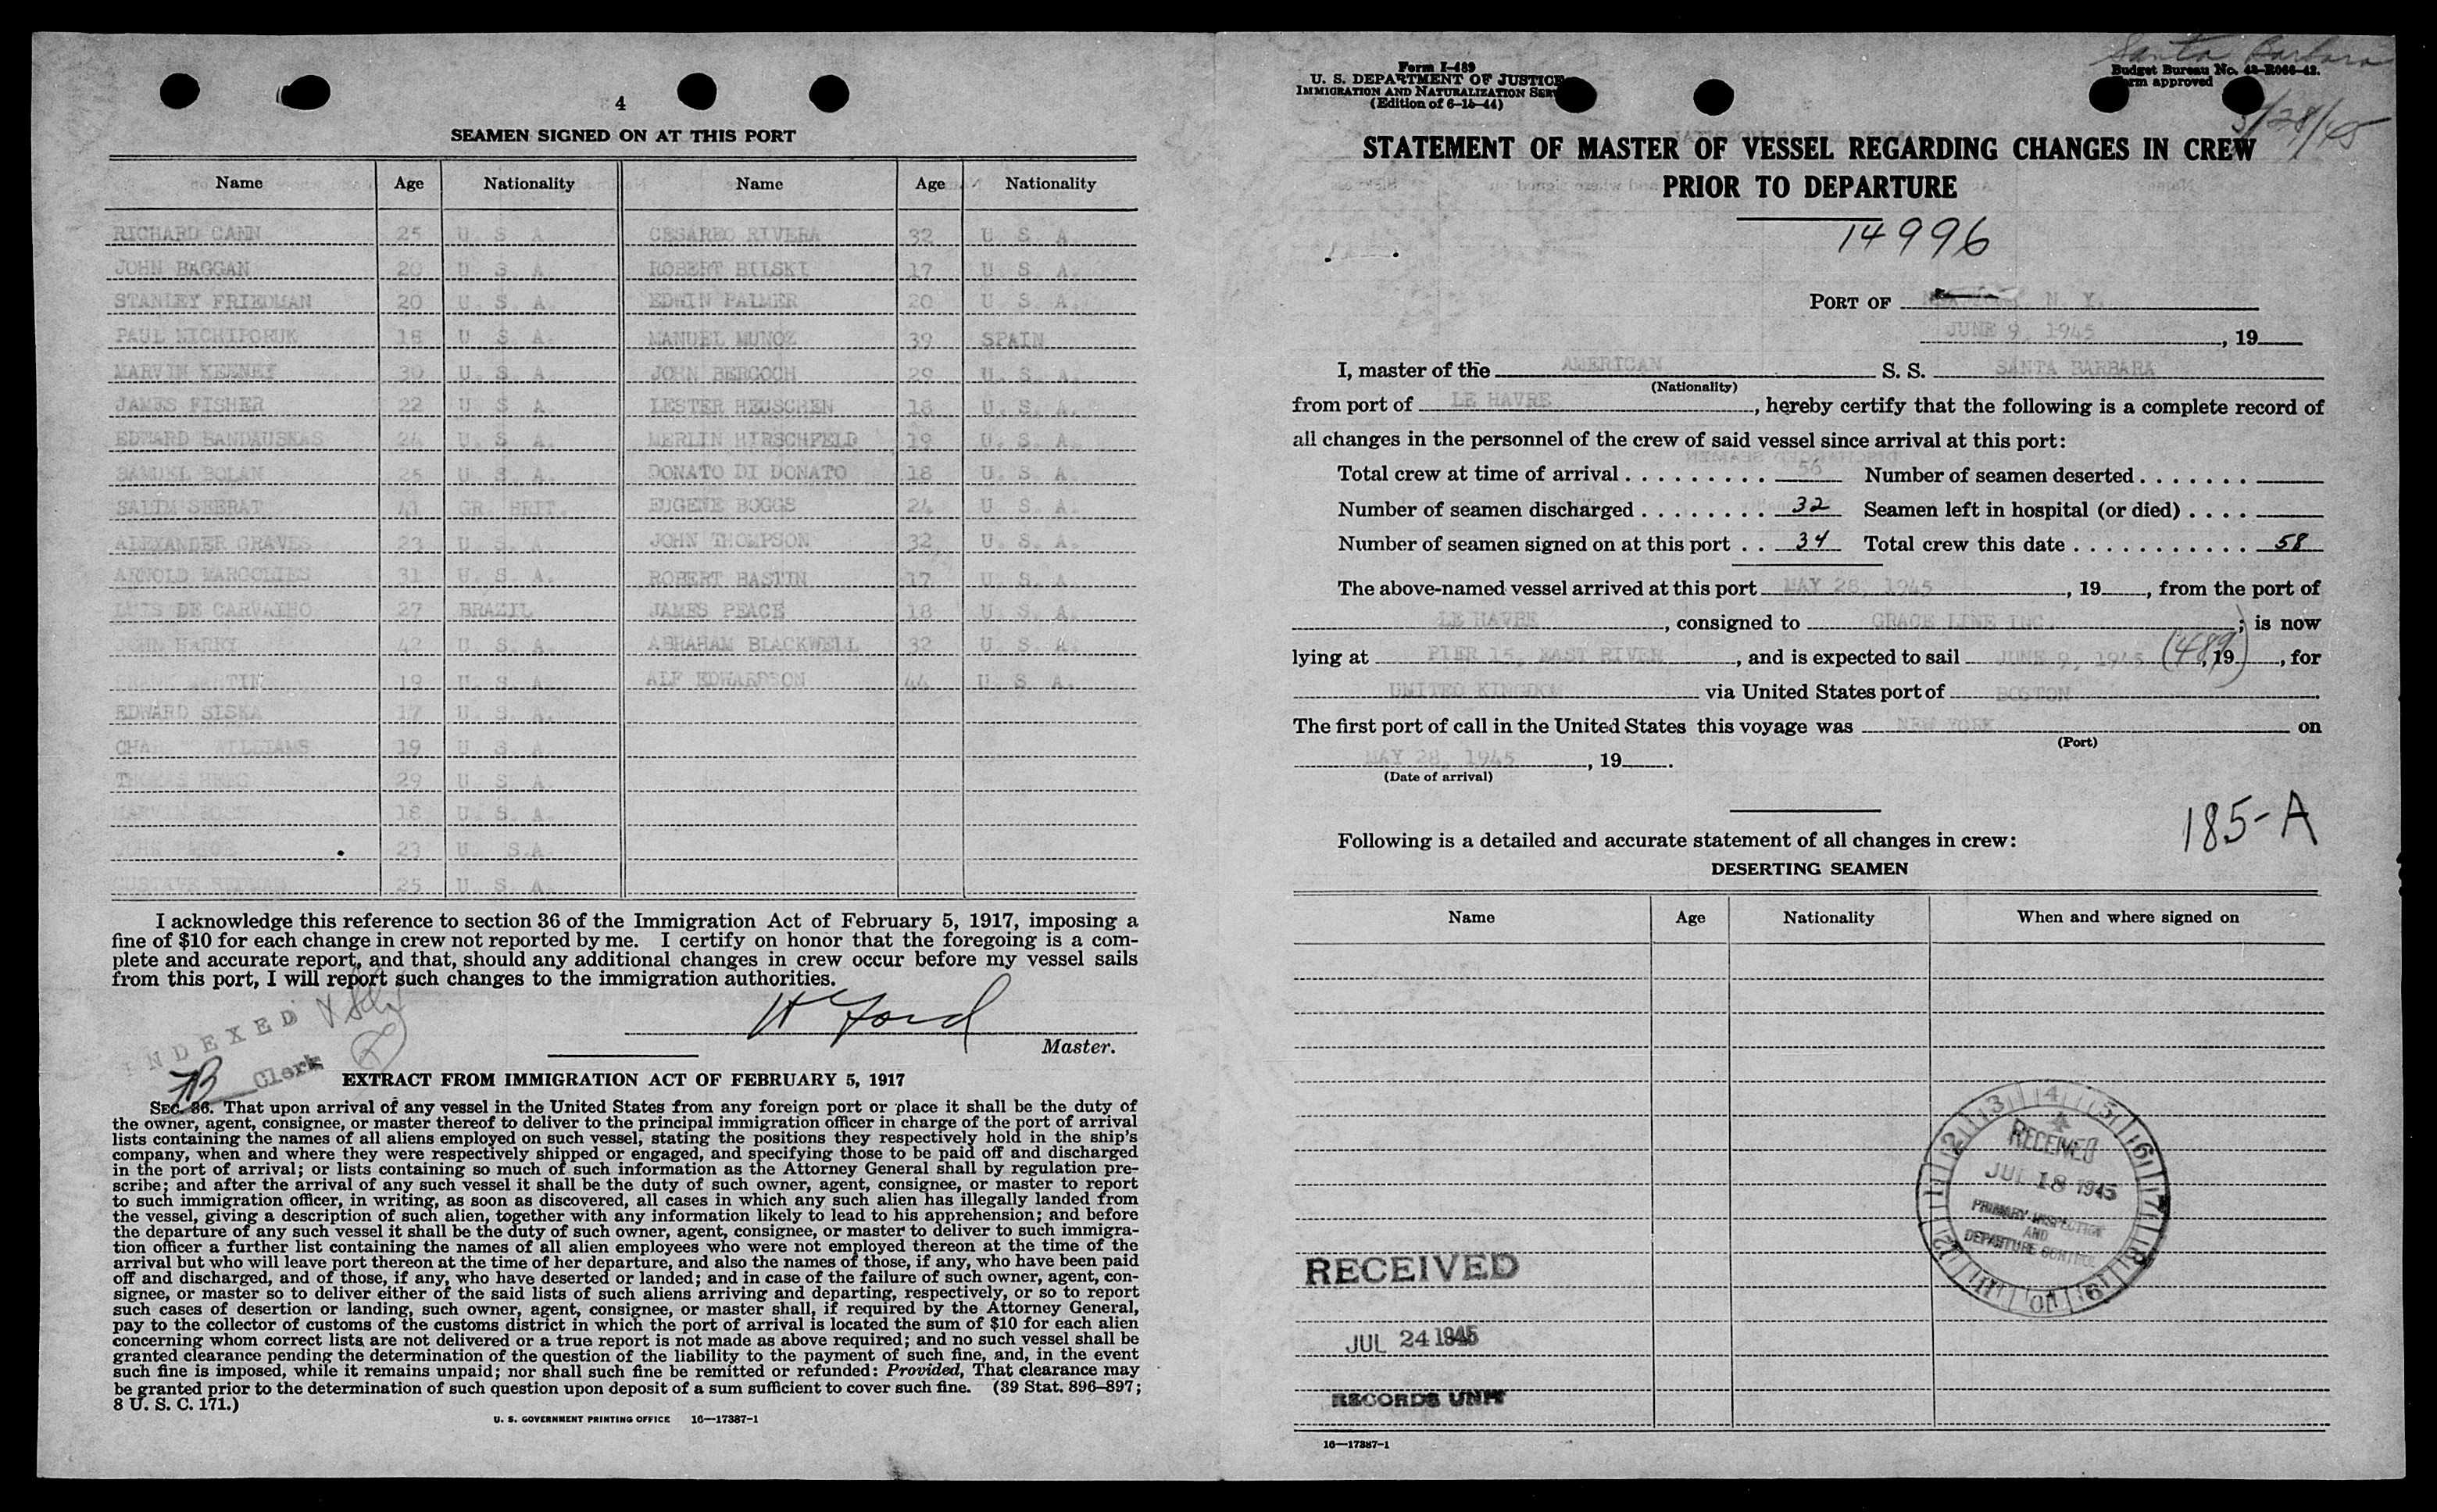 4
SEAMEN SIGNED ON AT THIS PORT
Name Age Nationality Name Age Nationality
RICHARD CANN 25 U. S. A. CESAREO RIVERA 32 U. S. A.
JOHN BAGGAN 20 U. S. A. ROBERT BILSKI 17 U. S. A.
STANLEY FRIEDMAN 20 U. S. A. EDWIN PALMER 20 U. S. A.
PAUL NICHIPORUK 18 U. S. A. MANUEL MUNOZ 39 SPAIN
MARVIN KEENEY 30 U. S. A. JOHN 29 U. S. A.
JAMES FISHER 22 U. S. A. LESTER HEUSCHEN 18 U. S. A.
EDWARD BANDAUSKAS 24 U. S. A. MERLIN HIRSCHFELD 19 U. S. A.
SAMUEL BOLAN 25 U. S. A. DONATO DI DONATO 18 U. S. A.
SALIM SEERAT 41 GR. BRIT. EUGENE BOGGS 24 U. S. A.
ALEXANDER GRAVES 23 U. S. A. JOHN THOMPSON 32 U. S. A.
ARNOLD MARGOLIES 31 U. S. A. ROBERT BASTIN 17 U. S. A.
LUIS DE CARVALHO 27 BRAZIL JAMES PEACE 18 U. S. A.
JOHN HARKY 42 U. S. A. ABRAHAM BLACKWELL 32 U. S. A.
MARTIN 19 U. S. A. ALF EDWARDSON 44 U. S. A.
EDWARD SISKA 17 U. S. A.
WILLIAMS 19 U. S. A.
THOMAS 29 U. S. A.
MARVIN 18 U. S. A.
JOHN 23 U. S.A.
GUSTAVE 25 U. S. A.
I acknowledge this reference to section 36 of the Immigration Act of February 5, 1917, imposing a
fine of $10 for each change in crew not reported by me. I certify on honor that the foregoing is a com-
plete and accurate report, and that, should any additional changes in crew occur before my vessel sails
from this port, I will report such changes to the immigration authorities.
INDEXED
H Ford
Master.
Clerk
EXTRACT FROM IMMIGRATION ACT OF FEBRUARY 5, 1917
SEC. 36. That upon arrival of any vessel in the United States from any foreign port or place it shall be the duty of
the owner, agent, consignee, or master thereof to deliver to the principal immigration officer in charge of the port of arrival
lists containing the names of all aliens employed on such vessel, stating the positions they respectively hold in the ship's
company, when and where they were respectively shipped or engaged, and specifying those to be paid off and discharged
in the port of arrival; or lists containing so much of such information as the Attorney General shall by regulation pre-
scribe; and after the arrival of any such vessel it shall be the duty of such owner, agent, consignee, or master to report
to such immigration officer, in writing, as soon as discovered, all cases in which any such alien has illegally landed from
the vessel, giving a description of such alien, together with any information likely to lead to his apprehension; and before
the departure of any such vessel it shall be the duty of such owner, agent, consignee, or master to deliver to such immigra-
tion officer a further list containing the names of all alien employees who were not employed thereon at the time of the
arrival but who will leave port thereon at the time of her departure, and also the names of those, if any, who have been paid
off and discharged, and of those, if any, who have deserted or landed; and in case of the failure of such owner, agent, con-
signee, or master so to deliver either of the said lists of such aliens arriving and departing, respectively, or so to report
such cases of desertion or landing, such owner, agent, consignee, or master shall, if required by the Attorney General,
pay to the collector of customs of the customs district in which the port of arrival is located the sum of $10 for each alien
concerning whom correct lists are not delivered or a true report is not made as above required; and no such vessel shall be
granted clearance pending the determination of the question of the liability to the payment of such fine, and, in the event
such fine is imposed, while it remains unpaid; nor shall such fine be remitted or refunded: Provided, That clearance may
be granted prior to the determination of such question upon deposit of a sum sufficient to cover such fine. (39 Stat. 896–897;
8 U. S. C. 171.)
U. S. GOVERNMENT PRINTING OFFICE 16—17387-1
Santa Barbara
Form I-489
U. S. DEPARTMENT OF JUSTICE
IMMIGRATION AND NATURALIZATION
(Edition of 6-15-44)
Budget Bureau No. 43-R066-43.
approved
5/28/45
STATEMENT OF MASTER OF VESSEL REGARDING CHANGES IN CREW
PRIOR TO DEPARTURE
14996
PORT OF N. Y.
JUNE 9, 1945, 19
I, master of the AMERICAN S. S. SANTA BARBARA
(Nationality)
from port of LE HAVRE, hereby certify that the following is a complete record of
all changes in the personnel of the crew of said vessel since arrival at this port:
Total crew at time of arrival 56 Number of seamen deserted
Number of seamen discharged 32 Seamen left in hospital (or died)
Number of seamen signed on at this port 34 Total crew this date 58
The above-named vessel arrived at this port MAY 28, 1945, 19, from the port of
LE HAVRE, consigned to GRACE LINE INC.; is now
lying at PIER 15, EAST RIVER, and is expected to sail JUNE 9, 1945 (489), 19, for
UNITED KINGDOM via United States port of BOSTON
The first port of call in the United States this voyage was NEW YORK on
(Port)
MAY 28, 1945, 19.
(Date of arrival)
185-A
Following is a detailed and accurate statement of all changes in crew:
DESERTING SEAMEN
Name Age Nationality When and where signed on
RECEIVED
JUL 18 1945
PRIMARY INSPECTION
AND
DEPARTURE CONTROL
RECEIVED
JUL 24 1945
RECORDS UNIT
16—17387-1